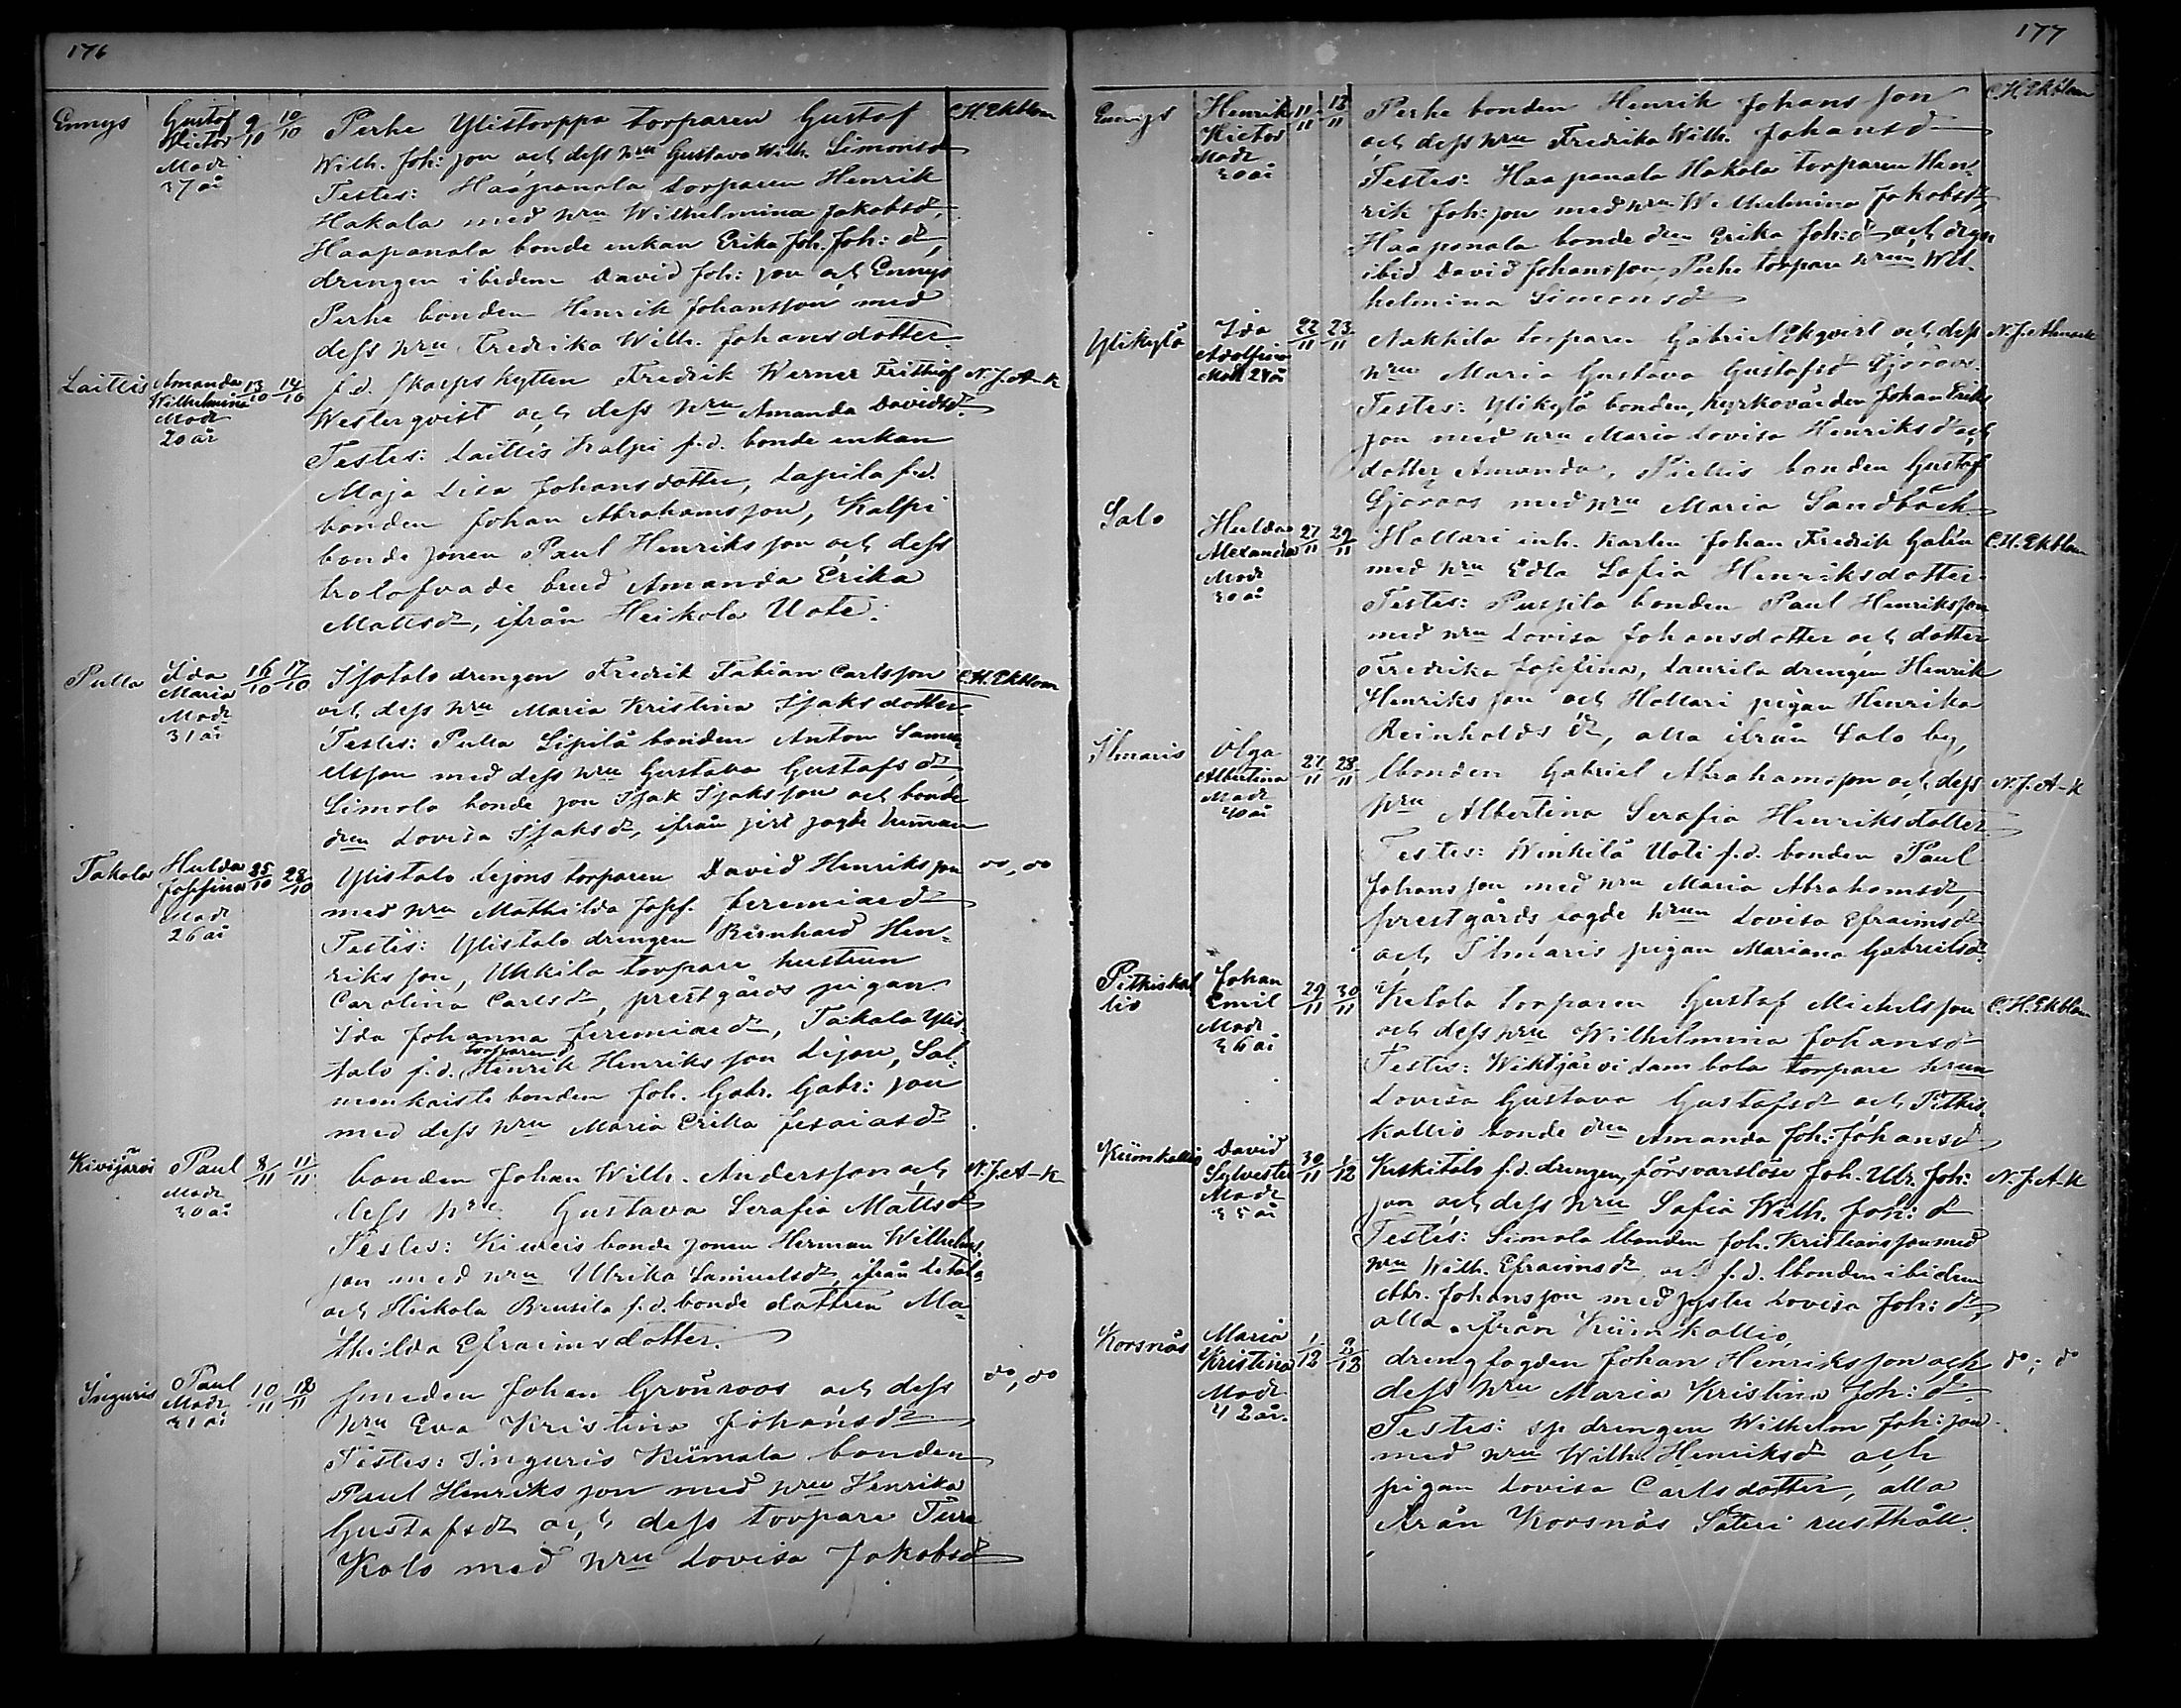 176
Ennys Gustof Victor Modr 37 år 9/10 10/10 Perhe Ylistorppa torparen Gustof C.H.Ekblom
Wilh. Joh: son och dess hru Gustava Wilh. Simonsdr
Testes: Haapanala torparen Henrik
Hakala med hru Wilhelmina Jakobsdr,
Haapanala bonde enkan Erika Joh. Joh: dr,
drengen ibidem David Joh: son och Ennys
Perhe bonden Henrik Johansson med
dess hru Fredrika Wilh. Johansdotter
Laittis Amanda Wilhelmina Modr 20 år 13/10 14/10 f.d. skarpskytten Fredrik Werner Frithiof N.J.A-k
Westerqvist och dess hru Amanda Davidsdr.
Testes: Laittis Kalpi f.d. bonde enkan
Maja Lisa Johansdotter, Lassila f.d.
bonden Johan Abrahamsson, Kalpi
bonde sonen Paul Henriksson och dess
trolofvade brud Amanda Erika
Mattsdr, ifrån Heikola Uote.
Pulla Ida Maria Modr 31 år 16/10 17/10 Isotalo drengen Fredrik Fabian Carlsson C.H.Ekblom
och dess hru Maria Kristina Isaksdotter
Testes: Pulla Sipilä bonden Anton Samu-
elsson med dess hru Gustava Gustafsdr,
Simola bonde son Isak Isaksson och bonde
drn Lovisa Isaksdr, ifrån sist sagde hemman
Takala Hulda Josefina Modr 26 år 25/10 28/10 Ylistalo Lejons torparen David Henriksson do, do
med hru Mathilda Josef. Jeremiaedr
Testes: Ylistalo drengen Reinhard Hen-
riksson, Ukkila torpare hustrun
Carolina Carlsdr, prestgårds pigan
Ida Johanna Jeremiaedr, Takala Ylis-
talo f.d. torparen Henrik Henriksson Lejon, Sal-
menkaista bonden Joh. Gabr. Gabr: son
med dess hru Maria Erika Jesaiasdr
Kivijärvi Paul Modr 30 år 8/11 11/11 bonden Johan Wilh. Andersson och N.J.A-k
dess hru Gustava Serafia Mattsdr
Testes: Kiureis bonde sonen Herman Wilhelms-
son med hru Ulrika Samuelsdr, ifrån Letala
och Heikola Brusila f.d. bonde dottren Ma-
thilda Efraimsdotter.
Inguris Paul Modr 31 år 10/11 12/11 smeden Johan Grönroos och dess do, do
hru Eva Kristina Johansdr
Testes: Inguris Kiimala bonden
Paul Henriksson med hru Henrika
Gustafsdr och dess torpare Ture
Kalo med hru Lovisa Jakobsdr
177
Ennys Henrik Victor Modr 30 år 11/11 12/11 Perhe bonden Henrik Johansson C.H.Ekblom
och dess hru Fredrika Wilh. Johansdr
Testes: Haapanala Hakala torparen Hen-
rik Joh: son med hru Wilhelmina Jakobsdr,
Haapanala bonde drn Erika Joh: dr och drgn
ibid. David Johansson, Perhe torpare hrun Wil-
helmina Simonsdr
Ylikylä Ida Adolfina Modr 24 år 22/11 23/11 Nakkila torparen Gabriel Ekqvist och dess N.J.Almark
hru Maria Gustava Gustafsdr Sjöroos.
Testes: Ylikylä bonden, kyrkovärden Johan Eriks
son med hru Maria Lovisa Henriksdr och
dotter Amanda, Pietis bonden Gustaf
Sjöroos med hru Maria Sandbäck
Salo Hulda Alexandra Modr 30 år 27/11 29/11 Hollari inh. karlen Johan Fredrik Galén C.H.Ekblom
med hru Edla Sofia Henriksdotter.
Testes: Pussila bonden Paul Henriksson
med hru Lovisa Johansdotter och dotter
Fredrika Josefina, Laurila drengen Henrik
Henriksson och Hollari pigan Henrika
Reinholdsdr, alla ifrån Salo by,
Ilmaris Olga Albertina Modr 40 år 27/11 28/11 lbonden Gabriel Abrahamsson och dess N.J.A-k
hru Albertina Serafia Henriksdotter
Testes: Winkilä Uoti f.d. bonden Paul
Johansson med hru Maria Abrahamsdr,
prestgårds fogde hrun Lovisa Efraimsdr
och Ilmaris pigan Mariana Gabrielsdr
Pitkiskallio Johan Emil Modr 36 år 29/11 30/11 Ketola torparen Gustaf Michelsson C.H.Ekblom
och dess hru Wilhelmina Johansdr
Testes: Wiktjärvi Lambola torpare hrun
Lovisa Gustava Gustafsdr och Pitkis-
kallio bonde drn Amanda Joh: Johansdr
Kiimkallio David Sylvester Modr 35 år 30/11 1/12 Keskitalo f.d. drengen, försvarslöse Joh. Ulr. Joh: N.J.A-k
son och dess hru Sofia Wilh. Joh: dr
Testes: Simola lbonden Joh. Kristiansson med
hru Wilh. Efraimsdr och f.d. lbonden ibidem
Abr. Johansson med syster Lovisa Joh: dr,
alla ifrån Kiimkallio,
Korsnäs Maria Kristina Modr 42 år. 1/12 2/12 drengfogden Johan Henriksson och do; do
dess hru Maria Kristina Joh: dr
Testes: sp drengen Wilhelm Joh: son
med hru Wilh. Henriksdr och
pigan Lovisa Carlsdotter, alla
från Korsnäs Säteri rusthåll.